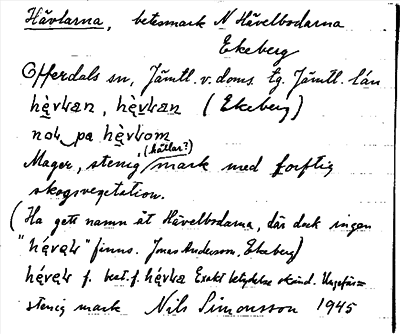 Hävlarna, betesmark N Hävelbodarna
Ekeberg
Offerdals sn, Jämtl. v. doms. tg. Jämtl. län
hèvɫan, hèvɫan (Ekeberg)
nol pa hèvɫom
(kullar?)
Mager, stenig mark med forftig
skogsvegetation.
(Ha gett namn åt Hävelbodarna, där dock ingen
"hévəɫ" finns. Jonas Anderson, Ekeberg)
hévəɫ f. best. f. hévɫa Exakt betydelse okänd. Ungefär=
stenig mark Nils Simonsson 1945